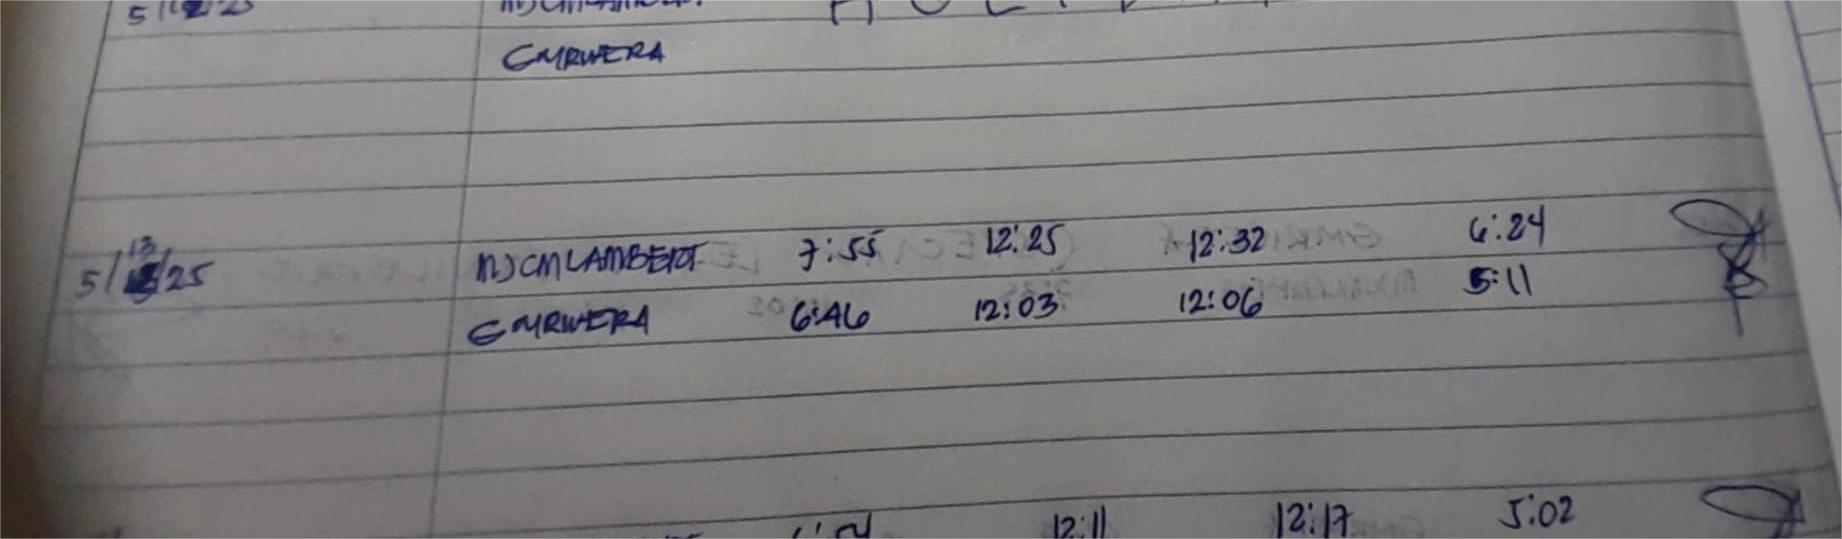 5/12/25 HOLIDAY
EMRIVERA
13
5/ /25 NJCMLAMBERT 7:55 12:25 12:32 6:24
EMRIVERA 6:46 12:03 12:06 5:11
12:11 12:17 5:02